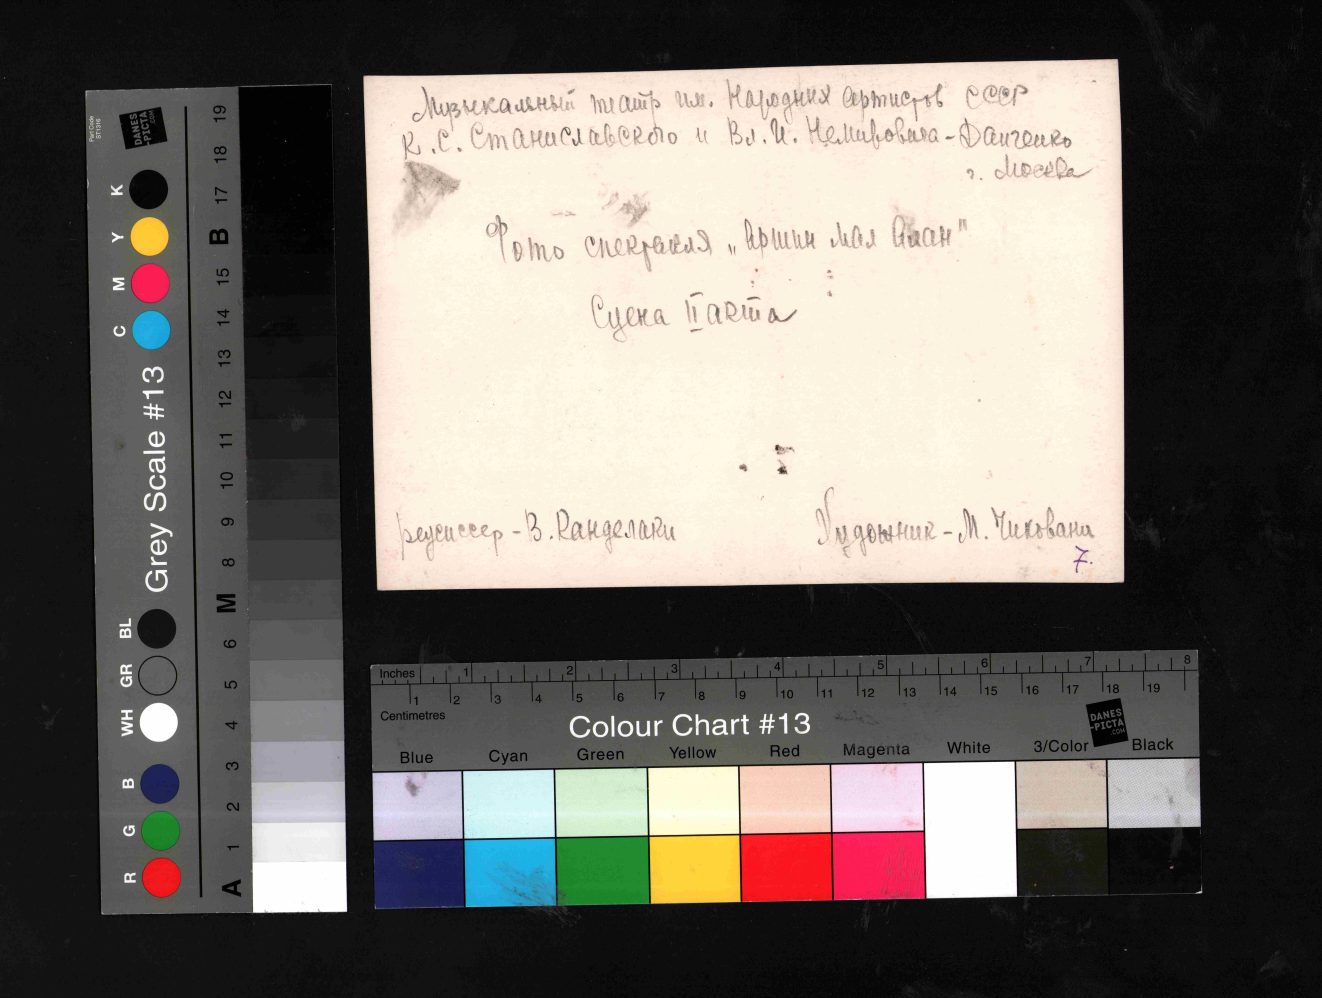 Музыкальный театр им. Народных артистов СССР
К. С. Станиславского и Вл. И. Немировича-Данченко
г. Москва
Фото спектакля „Аршин мал Алан"
Сцена II акта
режиссер - В. Канделаки
Художник - М. Чиковани
7.
Part Code
ST1316
DANES
-PICTA
.COM
K
Y
M
C
Grey Scale #13
BL
GR
WH
B
G
R
19
18
17
B
15
14
13
12
11
10
9
8
M
6
5
4
3
2
1
A
Inches 1 2 3 4 5 6 7 8
1 2 3 4 5 6 7 8 9 10 11 12 13 14 15 16 17 18 19
Centimetres
Colour Chart #13
DANES
-PICTA
.COM
Blue Cyan Green Yellow Red Magenta White 3/Color Black